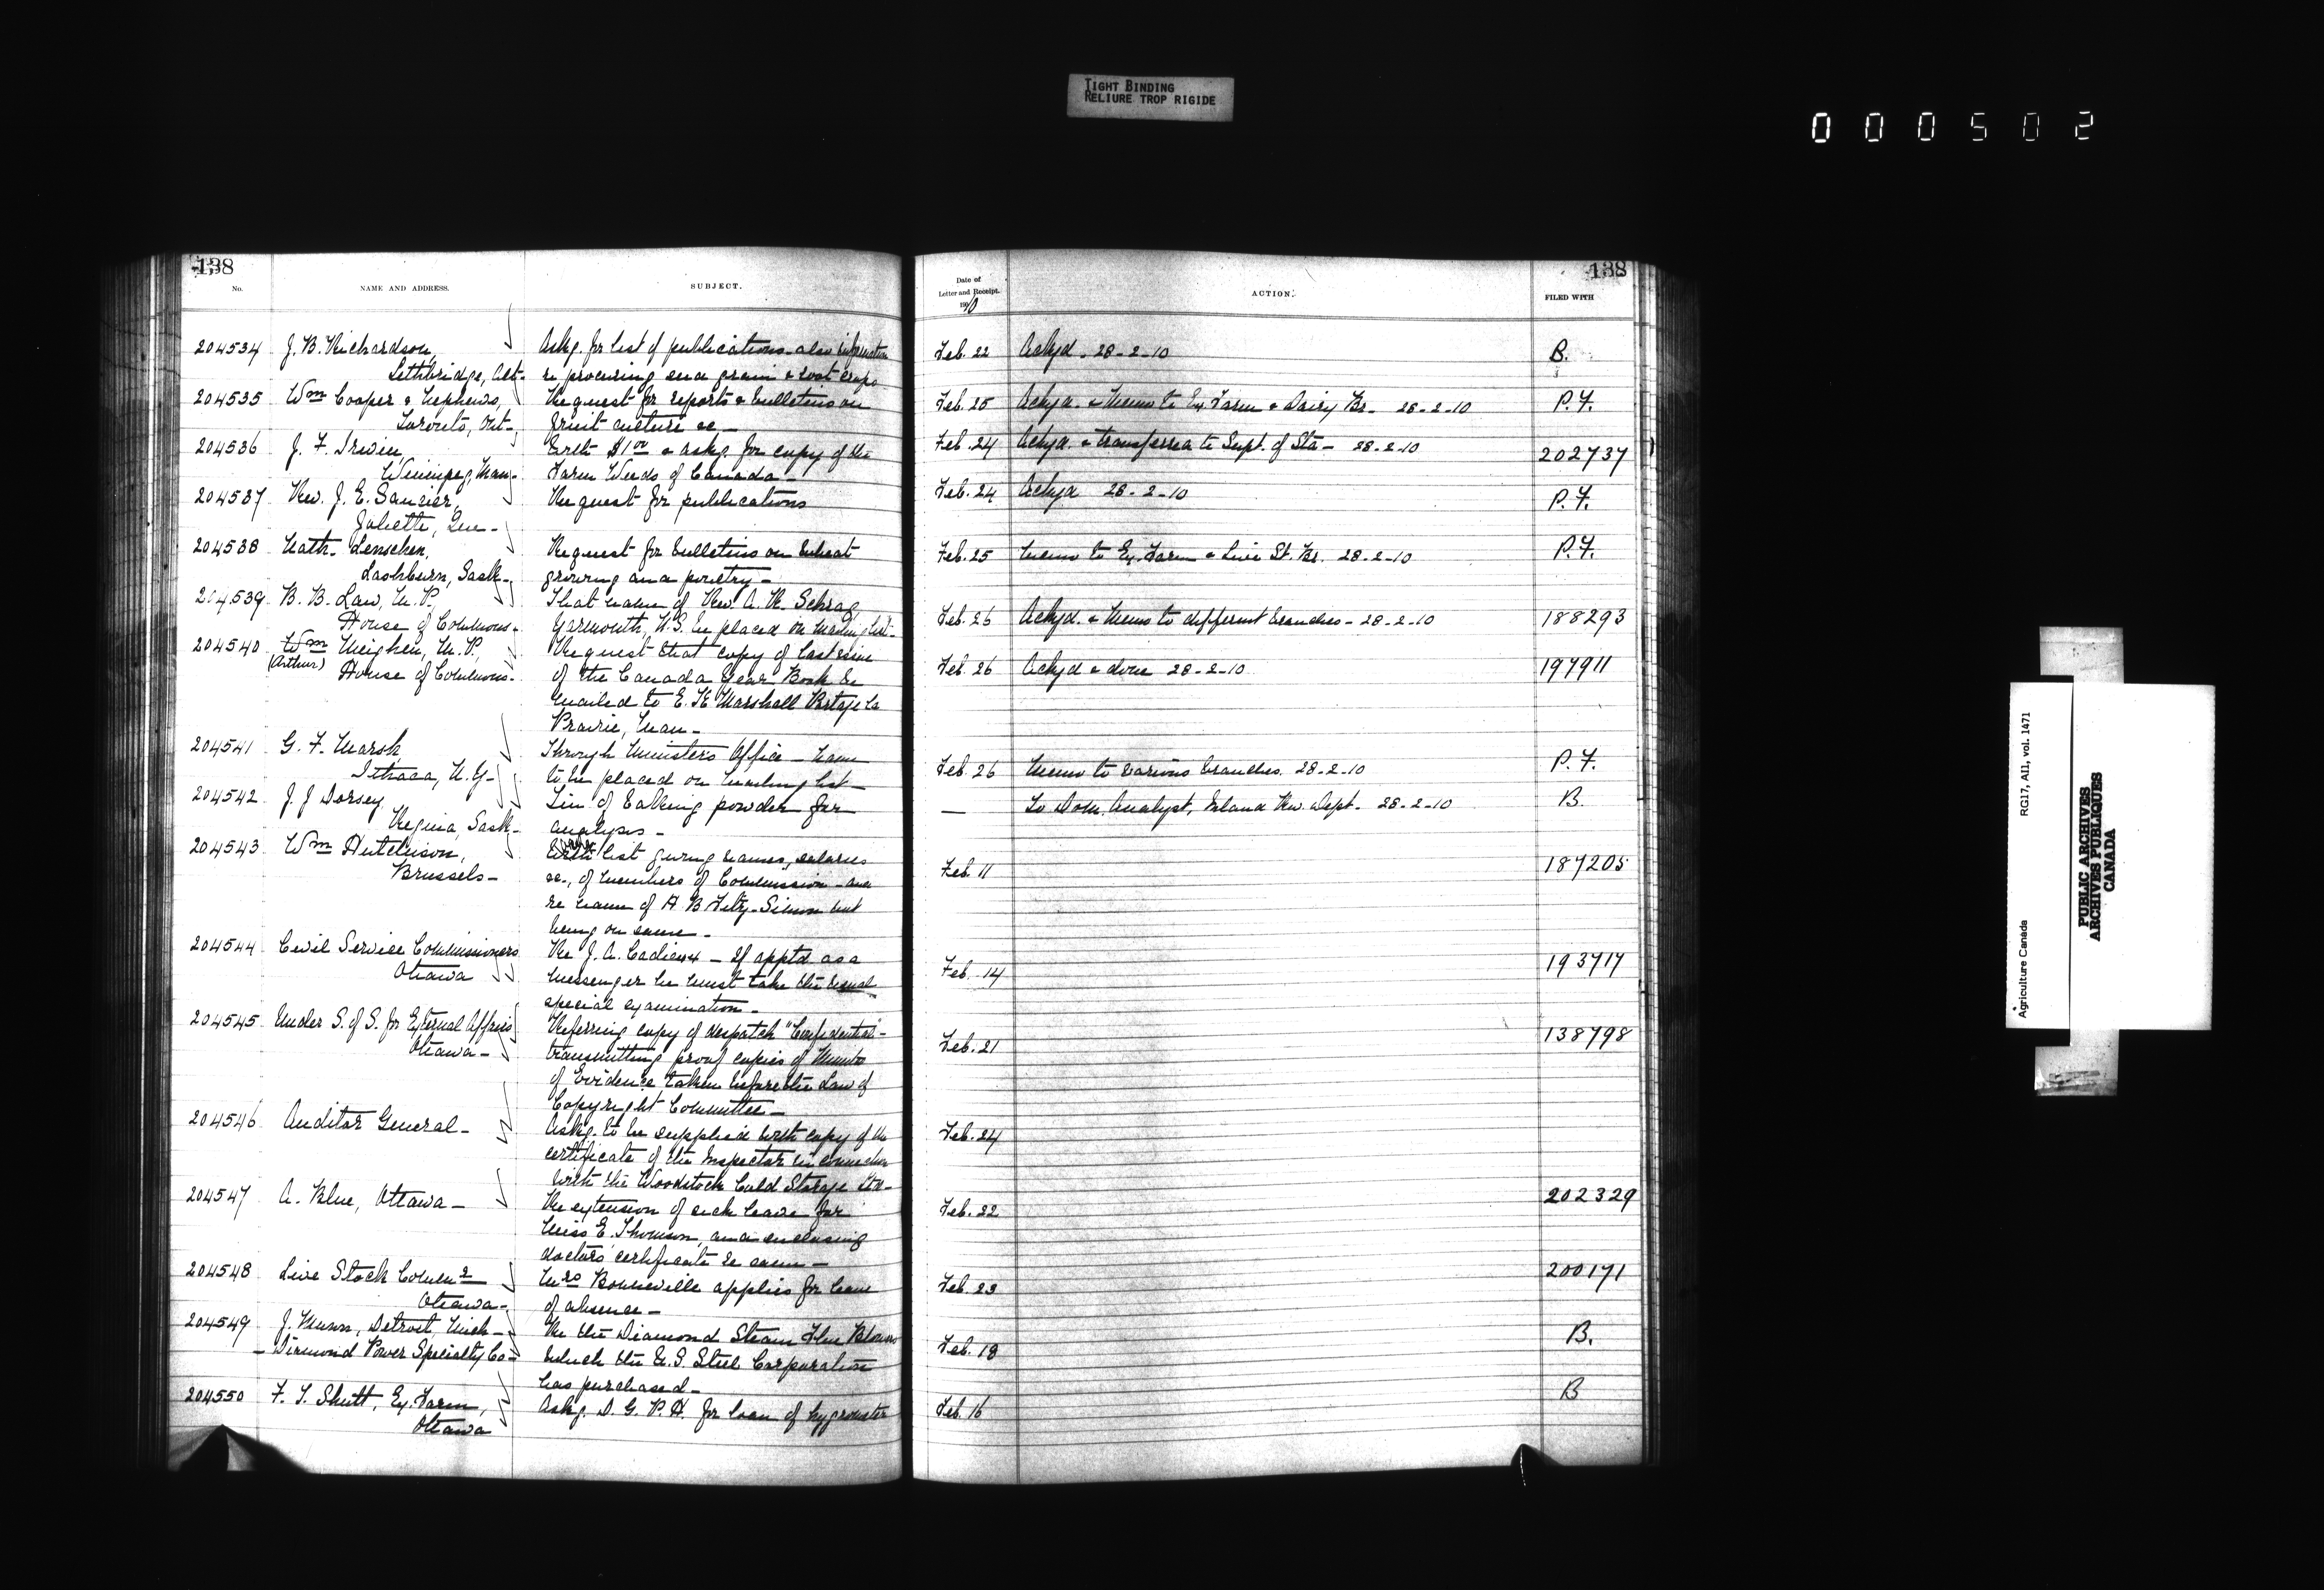 TIGHT BINDING
RELIURE TROP RIGIDE
000502
138
No.
NAME AND ADDRESS.
SUBJECT.
204534 J. B. Richardson, Askg. for list of publications - also information
Lethbridge, Alt- re procuring seed grain & root crops
204535 Wm Cooper & Nephews, Request for reports & bulletins on
Toronto, Ont- fruit culture &c -
204536 J. F. Irwin, Encl'g $1 00 & askg. for copy of the
Winnipeg, Man- Farm Weeds of Canada -
204537 Rev. J. E. Saucier, Request for publications
Joliette, Que-
204538 Nath. Lenschen, Request for bulletins on wheat
Lashburn, Sask- growing and poultry -
204539 B. B. Law, M.P. That name of Rev. A. R. Schrag
House of Commons- Yarmouth, N.S. be placed on mailing list-
204540 Wm Meighen, M.P. Request that copy of last issue
(Arthur) House of Commons- of the Canada Year Book be
mailed to E. H. Marshall Portage La
Prairie, Man-
204541 G. F. Marsh, Through Minister's Office - name
Ithaca, N.Y- to be placed on mailing list -
204542 J. J Dorsey, Tin of baking powder for
Regina, Sask- analysis -
204543 Wm Hutchison, list giving names, salaries
Brussels- &c., of members of Commission - and
re name of H B Fitz-Simon not
being on same -
204544 Civil Service Commissioners Re J. A. Cadieux - If apptd as a
Ottawa messenger he must take the usual
special examination -
204545 Under S. of S. for External Affairs Referring copy of despatch "Confidential"-
Ottawa - transmitting proof copies of Minutes
of Evidence taken before the Law of
Copyright Committee -
204546 Auditor General - Askg. to be supplied with copy of the
certificate of the Inspector in connection
with the Woodstock Cold Storage
204547 A. Blue, Ottawa - Re extension of sick leave for
Miss E. Thomson, and enclosing
doctors' certificate re same -
204548 Live Stock Commr Mrs Bonneville applies for leave
Ottawa- of absence -
204549 J. Munn, Detroit, Mich - Re the Diamond Steam Flue Blowers
- Diamond Power Specialty Co- which the U.S. Steel Corporation
has purchased -
204550 F. T. Shutt, Ex. Farm, Askg. D. G. P. H. for loan of hygrometer
Ottawa
138
Date of
Letter and Receipt.
1910
ACTION.
FILED WITH
Feb. 22 Ackgd. 28-2-10 B.
Feb. 25 Ackgd. & Memo to Ex Farm & Dairy Br- 28-2-10 P.F.
Feb. 24 Ackgd. & transferred to Supt. of Sta- 28-2-10 202737
Feb. 24 Ackgd 28-2-10 P.F.
Feb. 25 Memo to Ex. Farm & Live St. Br. 28-2-10 P.F.
Feb. 26 Ackgd. & Memo to different branches - 28-2-10 188293
Feb. 26 Ackgd & done 28-2-10 197911
Feb. 26 Memo to various branches. 28-2-10 P.F.
— To Dom. Analyst, Inland Rev. Dept. 28-2-10 B.
Feb. 11 187205
Feb. 14 193717
Feb. 21 138798
Feb. 24
Feb. 22 202329
Feb. 23 200171
Feb. 18 B.
Feb. 16 B
Agriculture Canada
RG17, AII, vol. 1471
PUBLIC ARCHIVES
ARCHIVES PUBLIQUES
CANADA